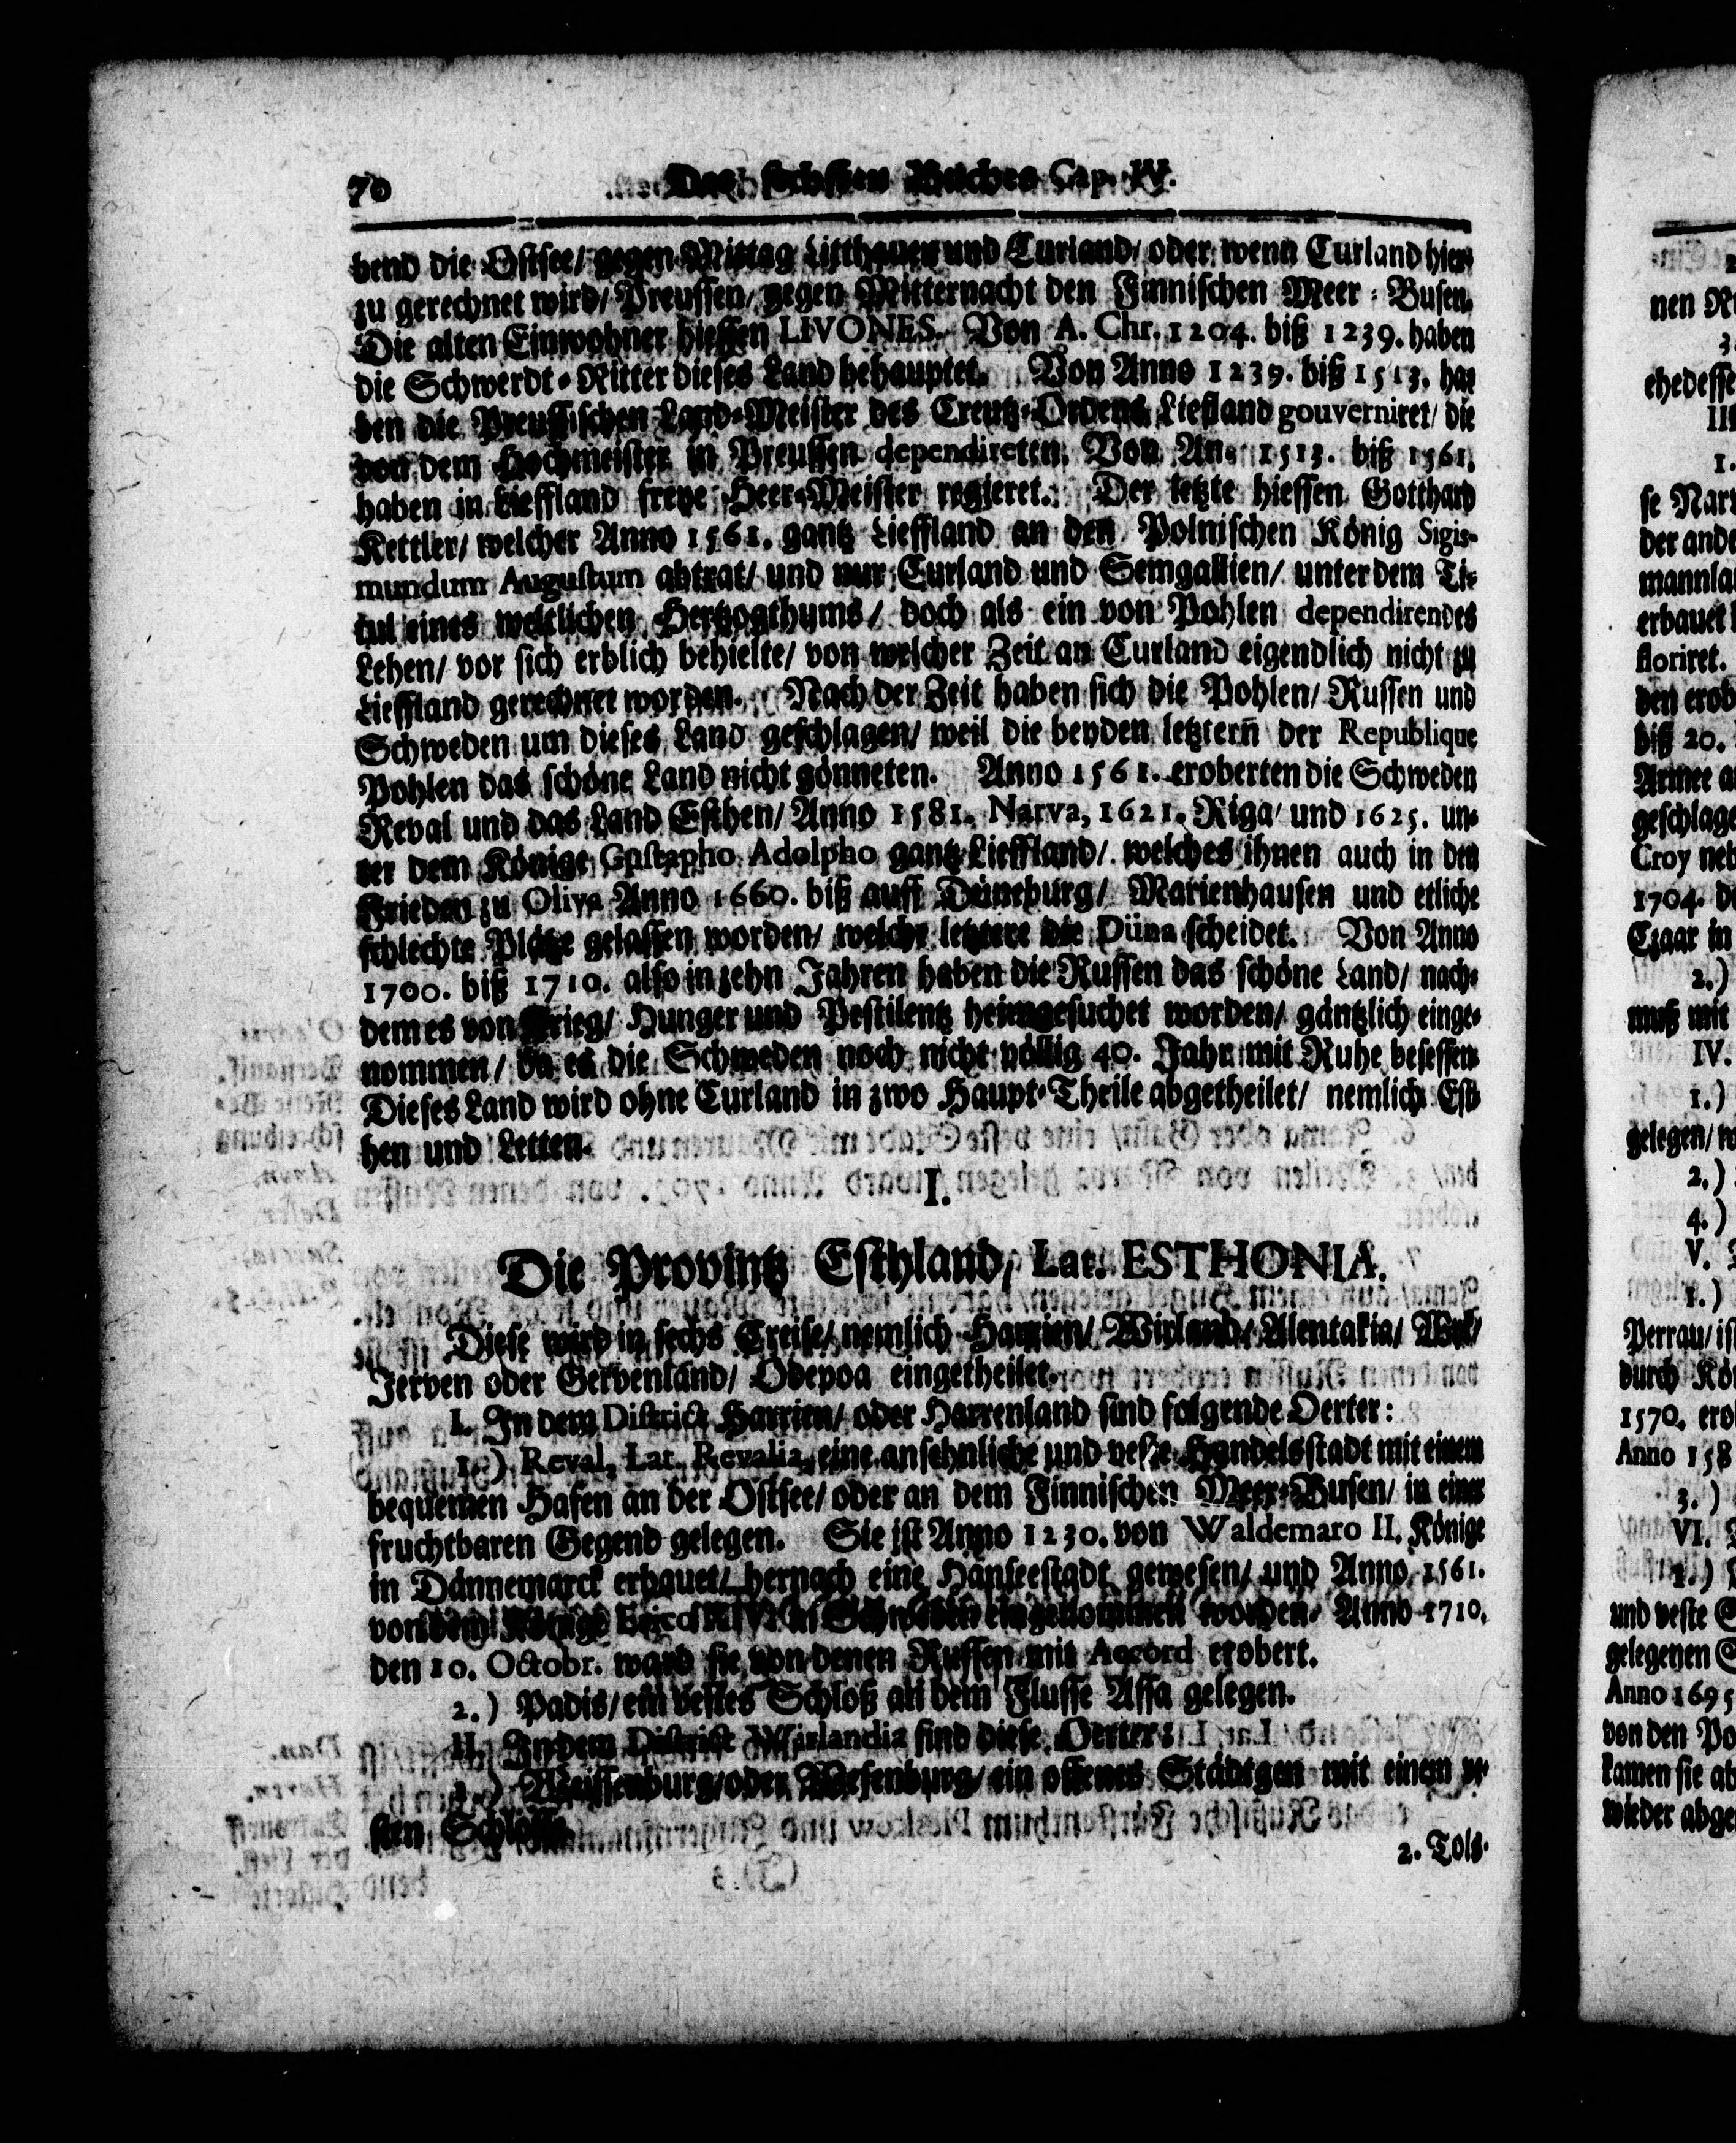 70 Des sechsten Buches Cap. IV.
bend die Ostsee/ gegen Mittag Litthauen und Curland/ oder wenn Curland hier-
zu gerechnet wird/ Preussen/ gegen Mitternacht den Finnischen Meer-Busen.
Die alten Einwohner hiessen LIVONES. Von A. Chr. 1204. biß 1239. haben
die Schwerdt-Ritter dieses Land behauptet. Von Anno 1239. biß 1513. ha-
ben die Preussischen Land-Meister des Creutz-Ordens Liefland gouverniret/ die
von dem Hochmeister in Preussen dependireten. Von An. 1513. biß 1561.
haben in Lieffland freye Heer-Meister regieret. Der letzte hiessen Gotthard
Kettler/ welcher Anno 1561. gantz Lieffland an den Polnischen König Sigis-
mundum Augustum abtrat/ und nur Curland und Semgallien/ unter dem Ti-
tul eines weltlichen Hertzogthums/ doch als ein von Pohlen dependirendes
Lehen/ vor sich erblich behielte/ von welcher Zeit an Curland eigendlich nicht zu
Lieffland gerechnet worden. Nach der Zeit haben sich die Pohlen/ Russen und
Schweden um dieses Land geschlagen/ weil die beyden letztern der Republique
Pohlen das schöne Land nicht gönneten. Anno 1561. eroberten die Schweden
Reval und das Land Esthen/ Anno 1581. Narva, 1621. Riga/ und 1625. un-
ter dem Könige Gustapho Adolpho gantz Lieffland/ welches ihnen auch in den
Frieden zu Oliva Anno 1660. biß auff Düneburg/ Marienhausen und etliche
schlechte Plätze gelassen worden/ welche letztere die Düna scheidet. Von Anno
1700. biß 1710. also in zehn Jahren haben die Russen das schöne Land/ nach-
dem es von Krieg/ Hunger und Pestilentz heimgesuchet worden/ gäntzlich einge-
nommen/ da es die Schweden noch nicht völlig 40. Jahr mit Ruhe besessen
Dieses Land wird ohne Curland in zwo Haupt-Theile abgetheilet/ nemlich Est-
hen und Letten.
I.
Die Provintz Esthland, Lat. ESTHONIA.
Diese wird in sechs Creise/ nemlich Harrien/ Wirland/ Alentakia/ Wyk/
Jerven oder Gervenland/ Odepoa eingetheilet.
I. In dem District Harrien/ oder Harrenland sind folgende Oerter:
1.) Reval, Lat. Revalia, eine ansehnliche und veste Handelsstadt mit einem
bequemen Hafen an der Ostsee/ oder an dem Finnischen Meer-Busen/ in einer
fruchtbaren Gegend gelegen. Sie ist Anno 1230. von Waldemaro II. Könige
in Dännemarck erbauet/ hernach eine Hanseestadt gewesen/ und Anno 1561.
von dem Könige Erico XIV. in Schweden eingenommen worden. Anno 1710.
den 10. Octobr. ward sie von denen Russen mit Accord erobert.
2.) Padis/ ein vestes Schloß an dem Flusse Assa gelegen.
II. In dem District Wirlandia sind diese Oerter:
1.) Weissenburg/ oder Wesenburg/ ein offenes Städtgen mit einem ve-
sten Schlosse.
2. Tols-
nen
3.
III
1.
se
der ande
erbauet
floriret.
den erob
biß 20.
Armee
geschlage
Croy
1704.
Czaar in
2.)
muß mit
IV.
1.)
gelegen/
2.)
4.)
V.
1.)
Perrau/
durch
1570. ero
Anno 158
3.)
VI.
1.)
und veste
gelegenen
Anno 1695
von den Po
kamen sie ab
wieder abge